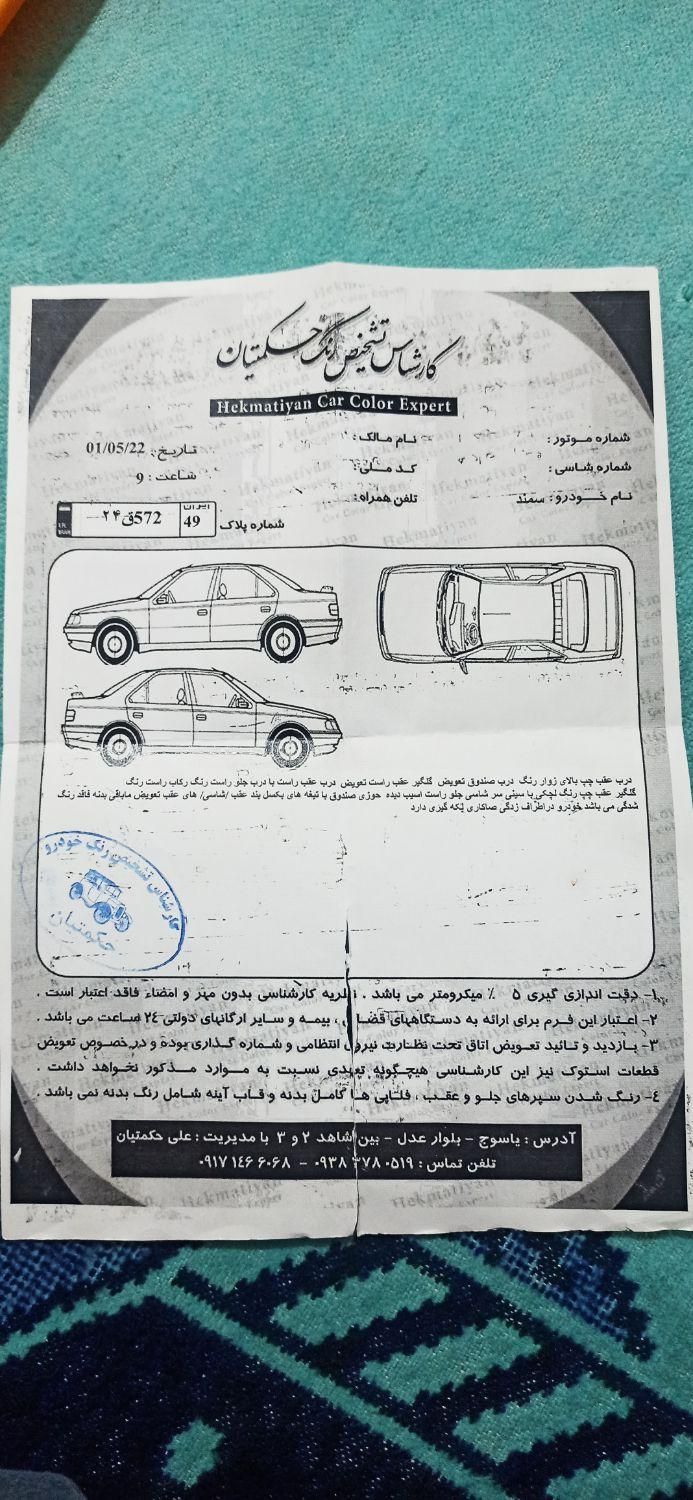 کارشناس تشخیص رنگ حکمتیان
Hekmatiyan Car Color Expert
شماره موتور : نام مالک : تاریخ : 01/05/22
شماره شاسی : کد ملی : ساعت : 9
نام خودرو : سمند تلفن همراه :
شماره پلاک ایران 49 572ق۲۴
I.R. IRAN
درب عقب چپ بالای زوار رنگ درب صندوق تعویض گلگیر عقب راست تعویض درب عقب راست با درب جلو راست رنگ رکاب راست رنگ
گلگیر عقب چپ رنگ لچکی با سینی سر شاسی جلو راست اسیب دیده حوزی صندوق با تیغه های یکسل بند عقب /شاسی/ های عقب تعویض مابافی بدنه فاقد رنگ
شدگی می باشد خودرو دراطراف زدگی صاکاری لکه گیری دارد
کارشناس تشخیص رنگ خودرو
حکمتیان
۱- دقت اندازی گیری ۵ ٪ میکرومتر می باشد . نظریه کارشناسی بدون مهر و امضاء فاقد اعتبار است .
۲- اعتبار این فرم برای ارائه به دستگاههای قضائی ، بیمه و سایر ارگانهای دولتی ۲۴ ساعت می باشد .
۳- بازدید و تائید تعویض اتاق تحت نظارت نیروی انتظامی و شماره گذاری بوده و در خصوص تعویض
قطعات استوک نیز این کارشناسی هیچگونه تعهدی نسبت به موارد مذکور نخواهد داشت .
٤- رنگ شدن سپرهای جلو و عقب ، فلاپی ها کامل بدنه و قاب آینه شامل رنگ بدنه نمی باشد .
آدرس : یاسوج - بلوار عدل - بین شاهد ۲ و ۳ با مدیریت : علی حکمتیان
تلفن تماس : ۰۹۳۸ ۳۷۸ ۰۵۱۹ - ۰۹۱۷ ۱۴۶ ۶۰۶۸